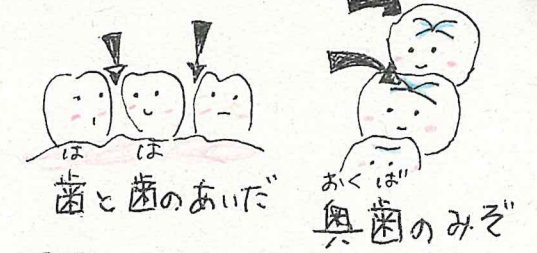 は　は
歯と歯のあいだ
おく　ば
奥歯のみぞ